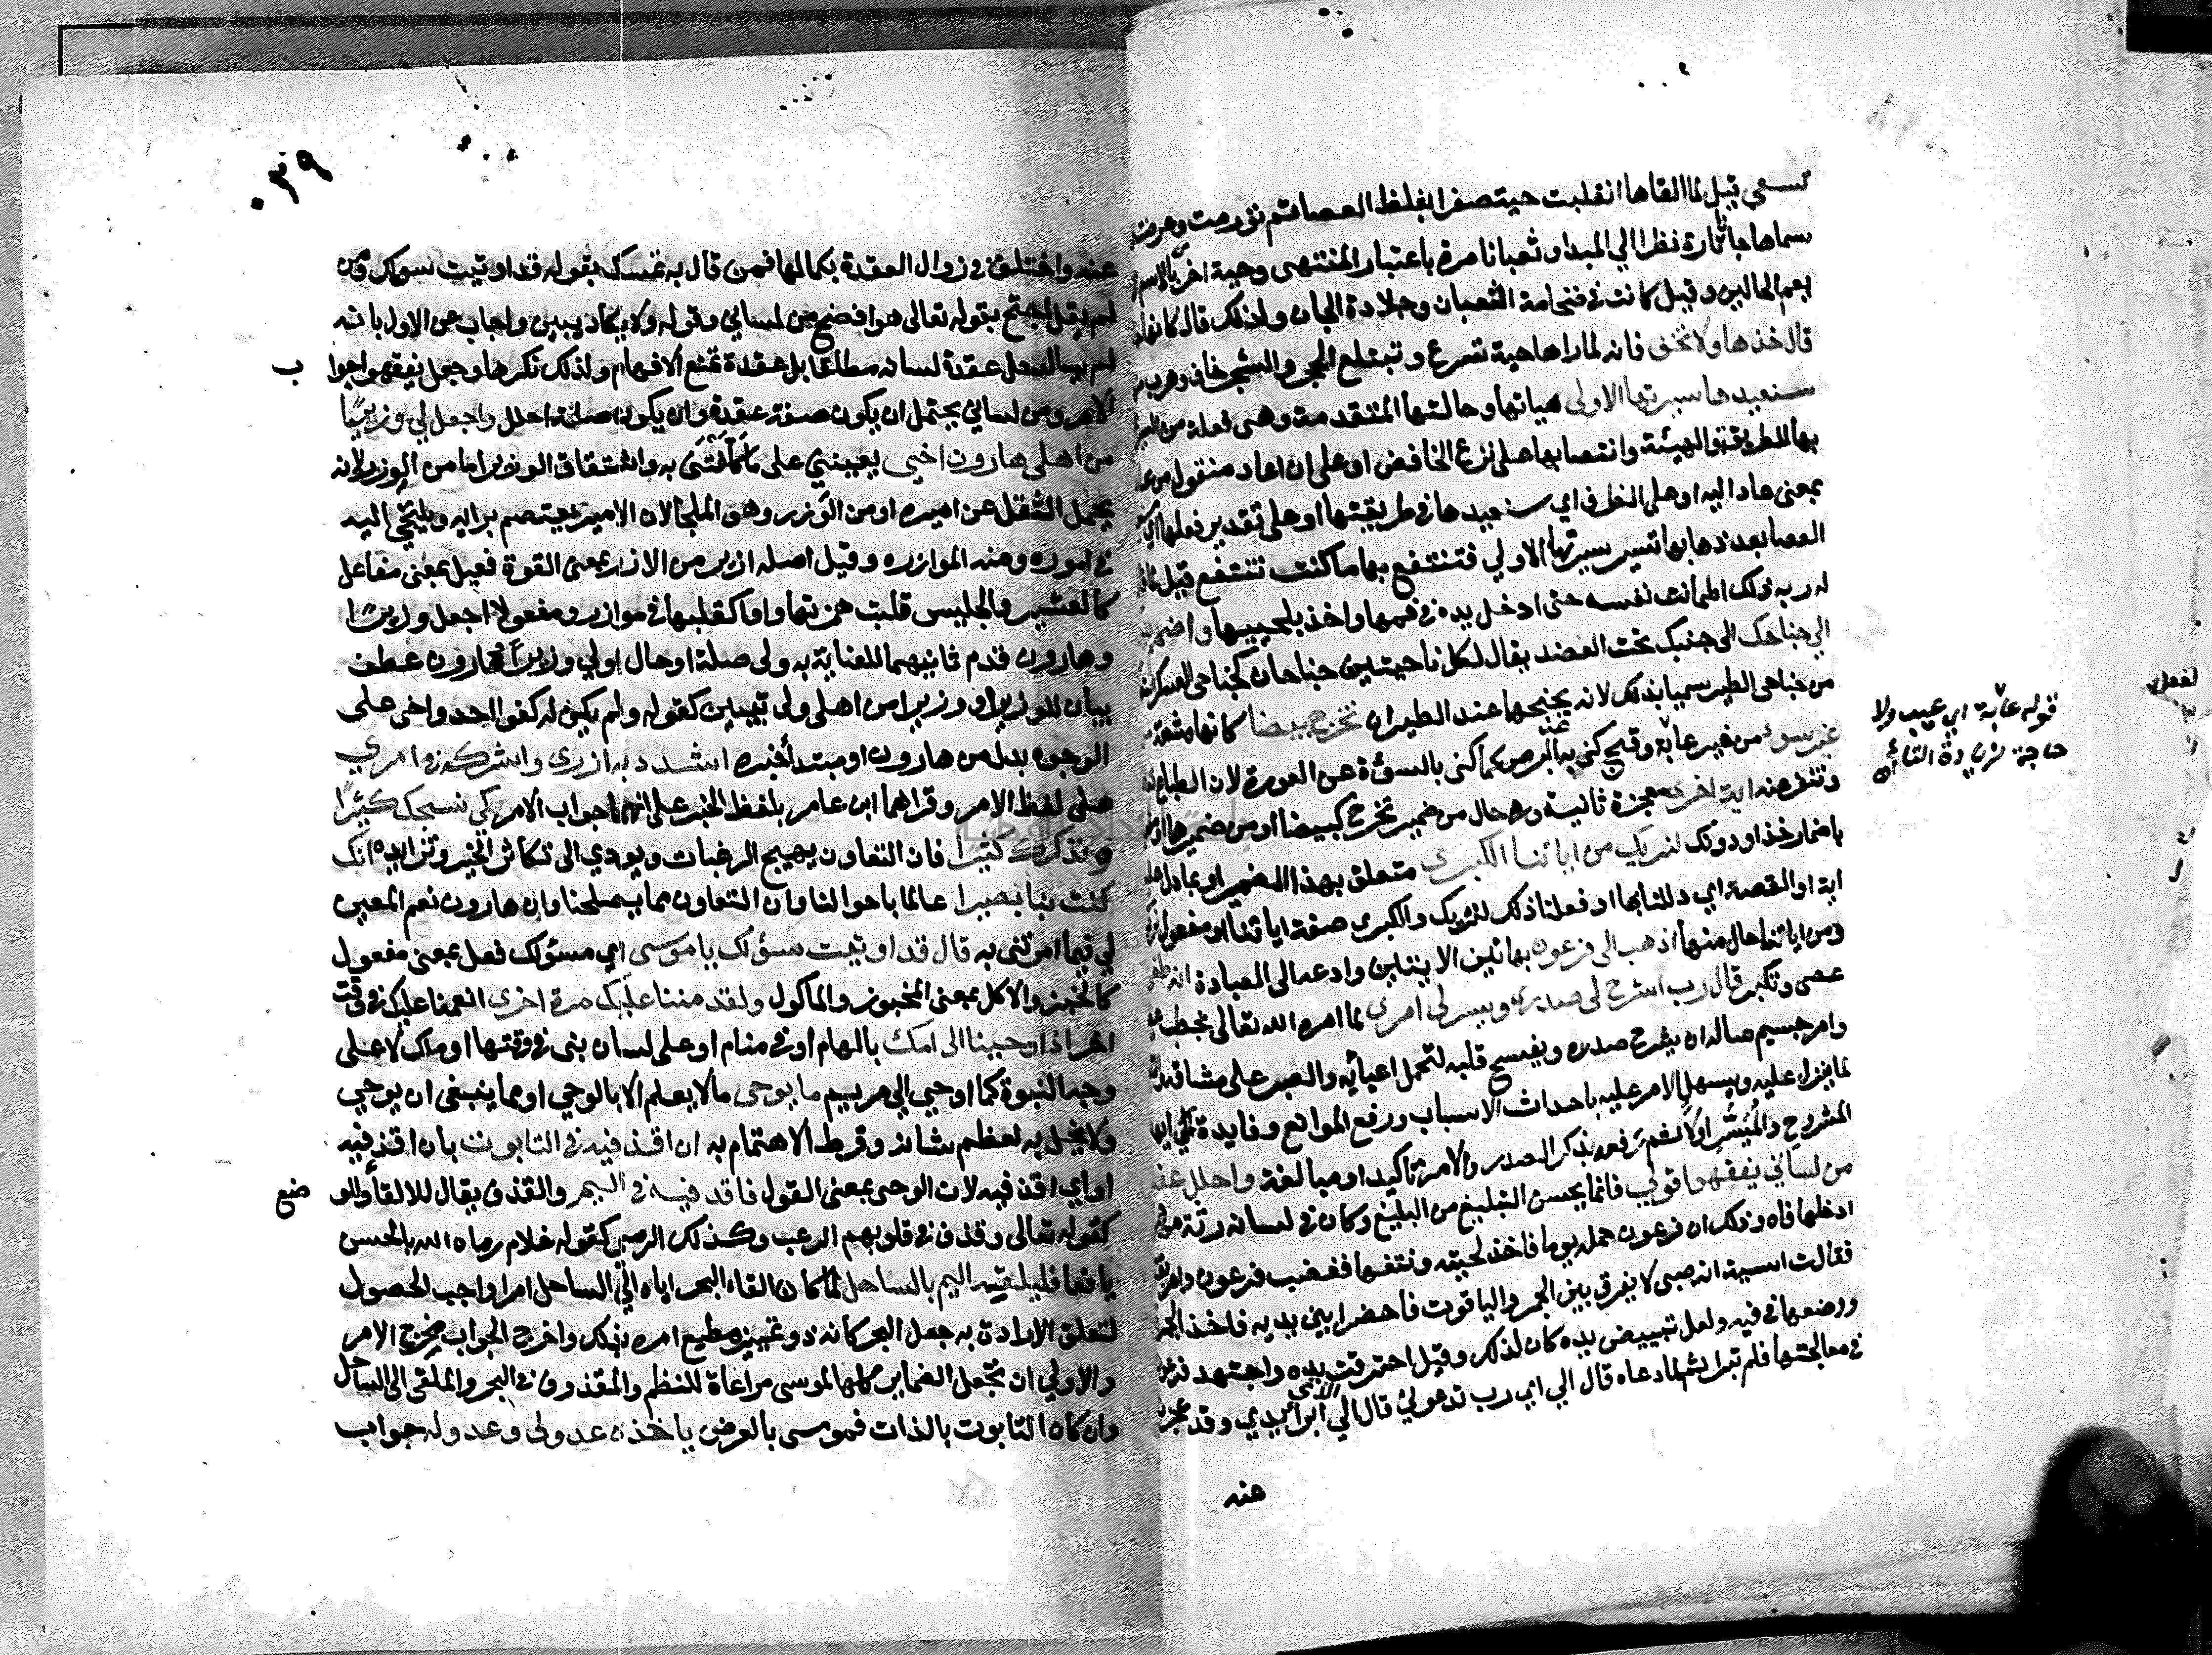 تسعى قيل لما القاها انقلبت حية صفرا بغلظ العصا ثم تورمت وعظمت
سماها جانا تارة نظرا الي المبدا وثعبانا مرة باعتبار المنتهى وحية اخرى بالاسم
يعم الحالين وقيل كانت في ضخامة الثعبان وجلادة الجان ولذلك قال كانها
قال خذها ولا تخف فانه لما راها حية تسرع وتبتلع الحجر والشجر خاف وهرب
سنعيدها سيرتها الاولى هياتها وحالتها المتقدمة وهى فعلة من السير
بها للطريقة والهيئة وانتصابها على نزع الخافض او على ان اعاد منقول من
بمعنى عاد اليه او على الظرف اي سنعيدها في طريقتها او على تقدير فعلها اي
العصا بعد ذهابها تسير سيرتها الاولي فتنتفع بها ما كنت تنتفع قبل
له ربه ذلك اطمانت نفسه حتى ادخل يده في فمها واخذ بلحييها واضمم
الي جناحك الى جنبك تحت العضد يقال لكل ناحيتين جناحان كجناحي العسكر
من جناحي الطير سميا بذلك لانه يجنحهما عند الطيران تخرج بيضا كانها مشعة
غير سوء من غير عابة وقبح كنى به عن البرص كما كنى بالسوءة عن العورة لان الطباع
وتنفر عنه اية اخرى معجزة ثانية وهي حال من ضمير تخرج كبيضا او من ضميرها او
باضمار خذ او دونك لنريك من اياتنا الكبرى متعلق بهذا المضمر او بما دل
اية او القصة اي دللنا بها او فعلنا ذلك لنريك والكبرى صفة اياتنا او مفعول
ومن اياتنا حال منها اذهب الى فرعون بهاتين الايتين وادعه الى العبادة انه
عصى وتكبر قال رب اشرح لي صدري ويسر لي امري لما امره الله تعالى بخطب
وامر جسيم ساله ان يشرح صدره ويفسح قلبه لتحمل اعبائه والصبر على مشاقه
لما ينزل عليه ويسهل الامر عليه باحداث الاسباب ورفع الموانع وفايدة لي
المشروح والميسر اولا ثم رفعه بذكر الصدر والامر تاكيدا ومبالغة واحلل
من لساني يفقهوا قولي فانما يحسن التبليغ من البليغ وكان في لسانه رتة من
ادخلها فاه وذلك ان فرعون حمله يوما فاخذ لحيته ونتفها فغضب فرعون وامر
فقالت اسية انه صبي لا يفرق بين الجمر والياقوت فاحضرا بين يديه فاخذ الجمر
ووضعها في فيه ولعل تبييض يده كان لذلك وقيل احترقت يده واجتهد
في معالجتها فلم تبرا ثم لما دعاه قال الي اي رب تدعوني قال الي الذي ابرأ يدي وقد عجزت
عنه
قوله عابة اي عيب ولا
حاجة لزيادة التاء
٠٣٩
عنه واختلف في زوال العقدة بكمالها فمن قال به تمسك بقوله قد اوتيت سولك ومن
لم يقل احتج بقوله تعالى هو افصح مني لسانا وقوله ولا يكاد يبين واجاب عن الاول بانه
لم يسال حل عقدة لسانه مطلقا بل عقدة تمنع الافهام ولذلك نكرها وجعل يفقهوا جواب
الامر ومن لساني يحتمل ان يكون صفة عقدة وان يكون صلة احلل واجعل لي وزيرا
من اهلي هارون اخي يعينني على ما كلفتني به واشتقاق الوزير اما من الوزر لانه
يحمل الثقل عن اميره او من الوزر وهو الملجا لان الامير يعتصم برايه ويلتجي اليه
في اموره ومنه الموازره وقيل اصله ازير من الازر بمعنى القوة فعيل بمعنى مفاعل
كالعشير والجليس قلبت همزتها واوا كقلبها في موازر ومفعولا اجعل وزيرا
وهارون قدم ثانيهما للعناية به ولي صلة او حال او لي وزيرا وهارون عطف
بيان للوزير او وزيرا من اهلي ولي تبيين كقوله ولم يكن له كفوا احد واخي على
الوجوه بدل من هارون او مبتدأ خبره اشدد به ازري واشركه في امري
على لفظ الامر وقراهما ابن عامر بلفظ الخبر على انهما جواب الامر كي نسبحك كثيرا
ونذكرك كثيرا فان التعاون يهيج الرغبات ويودي الى تكاثر الخير وتزايده انك
كنت بنا بصيرا عالما باحوالنا وان التعاون مما يصلحنا وان هارون نعم المعين
لي فيما امرتني به قال قد اوتيت سؤلك يا موسى اي مسؤلك فعل بمعنى مفعول
كالخبز والاكل بمعنى المخبوز والماكول ولقد مننا عليك مرة اخرى انعمنا عليك في وقت
اخر اذ اوحينا الى امك بالهام او في منام او على لسان نبى في وقتها او ملك لا على
وجه النبوة كما اوحي الي مريم ما يوحى مالا يعلم الا بالوحي او مما ينبغى ان يوحي
ولا يخل به لعظم شانه وفرط الاهتمام به ان اقذفيه في التابوت بان اقذفيه
او اي اقذفيه لان الوحى بمعنى القول فاقذفيه في اليم والقذف يقال للالقاء وللوضع
كقوله تعالى وقذف في قلوبهم الرعب وكذلك الرمي كقوله غلام رماه الله بالحسن
يافعا فليلقيه اليم بالساحل لما كان القاء البحر اياه الي الساحل امرا واجب الحصول
لتعلق الارادة به جعل البحر كانه ذو تمييز مطيع امره بذلك واخرج الجواب مخرج الامر
والاولي ان تجعل الضماير كلها لموسى مراعاة للنظم والمقذوف في البحر والملقى الى الساحل
وان كان التابوت بالذات فموسى بالعرض ياخذه عدو لي وعدو له جواب